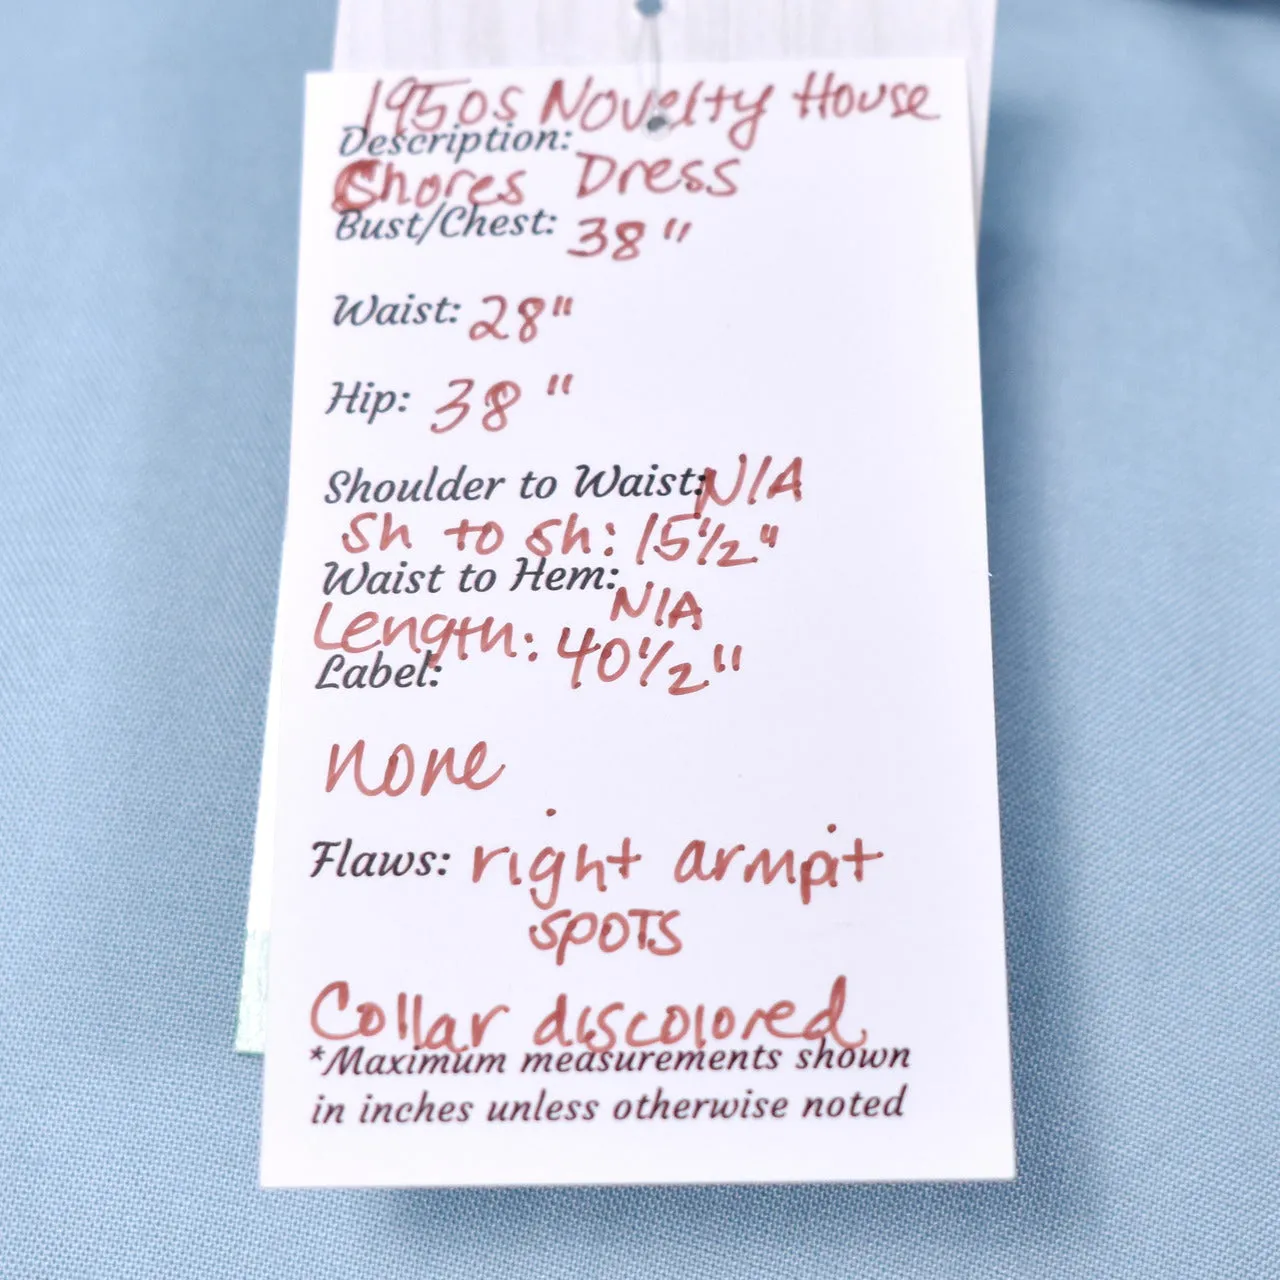 1950s Novelty House
Description:
Chores Dress
Bust/Chest: 38"
Waist: 28"
Hip: 38"
Shoulder to Waist: N/A
Sh to sh: 15½"
Waist to Hem: N/A
Length: 40½"
Label:
none
Flaws: right armpit
spots
Collar discolored
*Maximum measurements shown
in inches unless otherwise noted